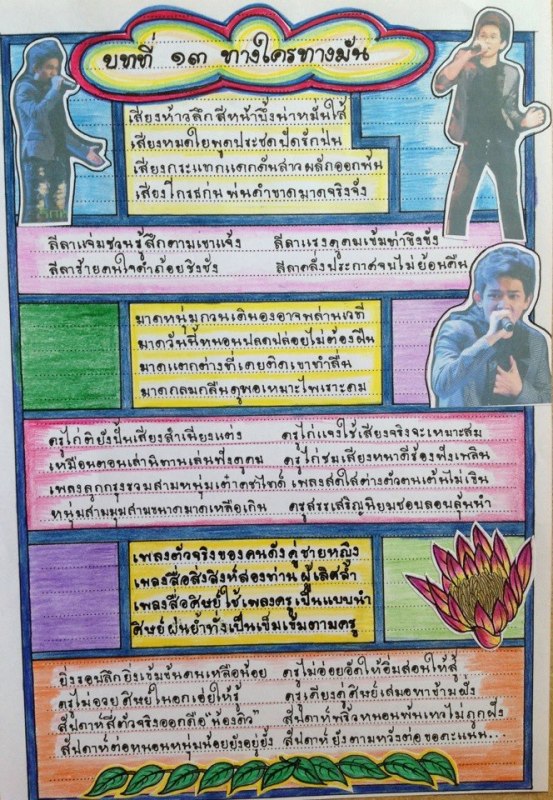 บทที่ ๑๓ ทางใครทางมัน
เสียงห้าวลึกสีหน้าบึ้งน่าหมั่นไส้
เสียงหมดใยพูดประชดปัดรักป่น
เสียงกระแทกแดกดันสาวผลักออกพ้น
เสียงโกรธก่นพ่นคำขาดมาดจริงจัง
ลีลาแจ่มชวนรู้สึกตามเขาแจ้ง ลีลาแรงดูคมเข้มท่าขึงขัง
ลีลาร้ายคนใจดำถ้อยชิงชัง ลีลาคลั่งประกาศจบไม่ย้อนคืน
มาดหนุ่มกวนเดินองอาจพล่านเวที
มาดวันนี้หนอนปลดปล่อยไม่ต้องฝืน
มาดแตกต่างที่เคยติดเขาทำลื่น
มาดกลมกลืนดูพอเหมาะไพเราะคม
ครูไก่ติยังปั้นเสียงสำเนียงแต่ง ครูไก่แจงใช้เสียงจริงจะเหมาะสม
เหมือนตอนเล่านิทานเล่นฟังดูคม ครูไก่ชมเสียงหนาดีร้องฟังเพลิน
เพลงลูกกรุงรวมสามหนุ่มเต๋าตุลย์ไทด์ เพลงสดใสต่างตัวตนเต้นไม่เขิน
หนุ่มสามมุมสามขนาดมาดเหลือเกิน ครูสรรเสริญนิยมชอบลอยลุ้นนำ
เพลงตัวจริงของคนดังคู่ชายหญิง
เพลงสื่อสิ่งสิงห์สองท่านผู้เลิศล้ำ
เพลงสื่อศิษย์ใช้เพลงครูเป็นแบบนำ
ศิษย์ฝนย้ำทั้งเป็นเข็มเข้มตามครู
ยิ่งรอบลึกยิ่งเข้มข้นคนเหลือน้อย ครูไม่อ่อยอัดให้อิ่มสอนให้สู้
ครูไม่อวยศิษย์ในอกเอ่ยให้รู้ ครูเคียงคู่ศิษย์เสมอพาข้ามฝั่ง
สัปดาห์สี่ตัวจริงออกคือ "น้องตั่ว" สัปดาห์พริ้วหนอนพ้นเหวไม่ถูกฝัง
สัปดาห์ต่อหนอนหนุ่มน้อยยังอยู่ยั้ง สัปดาห์ยังตามหวังต่อขอคะแนน...